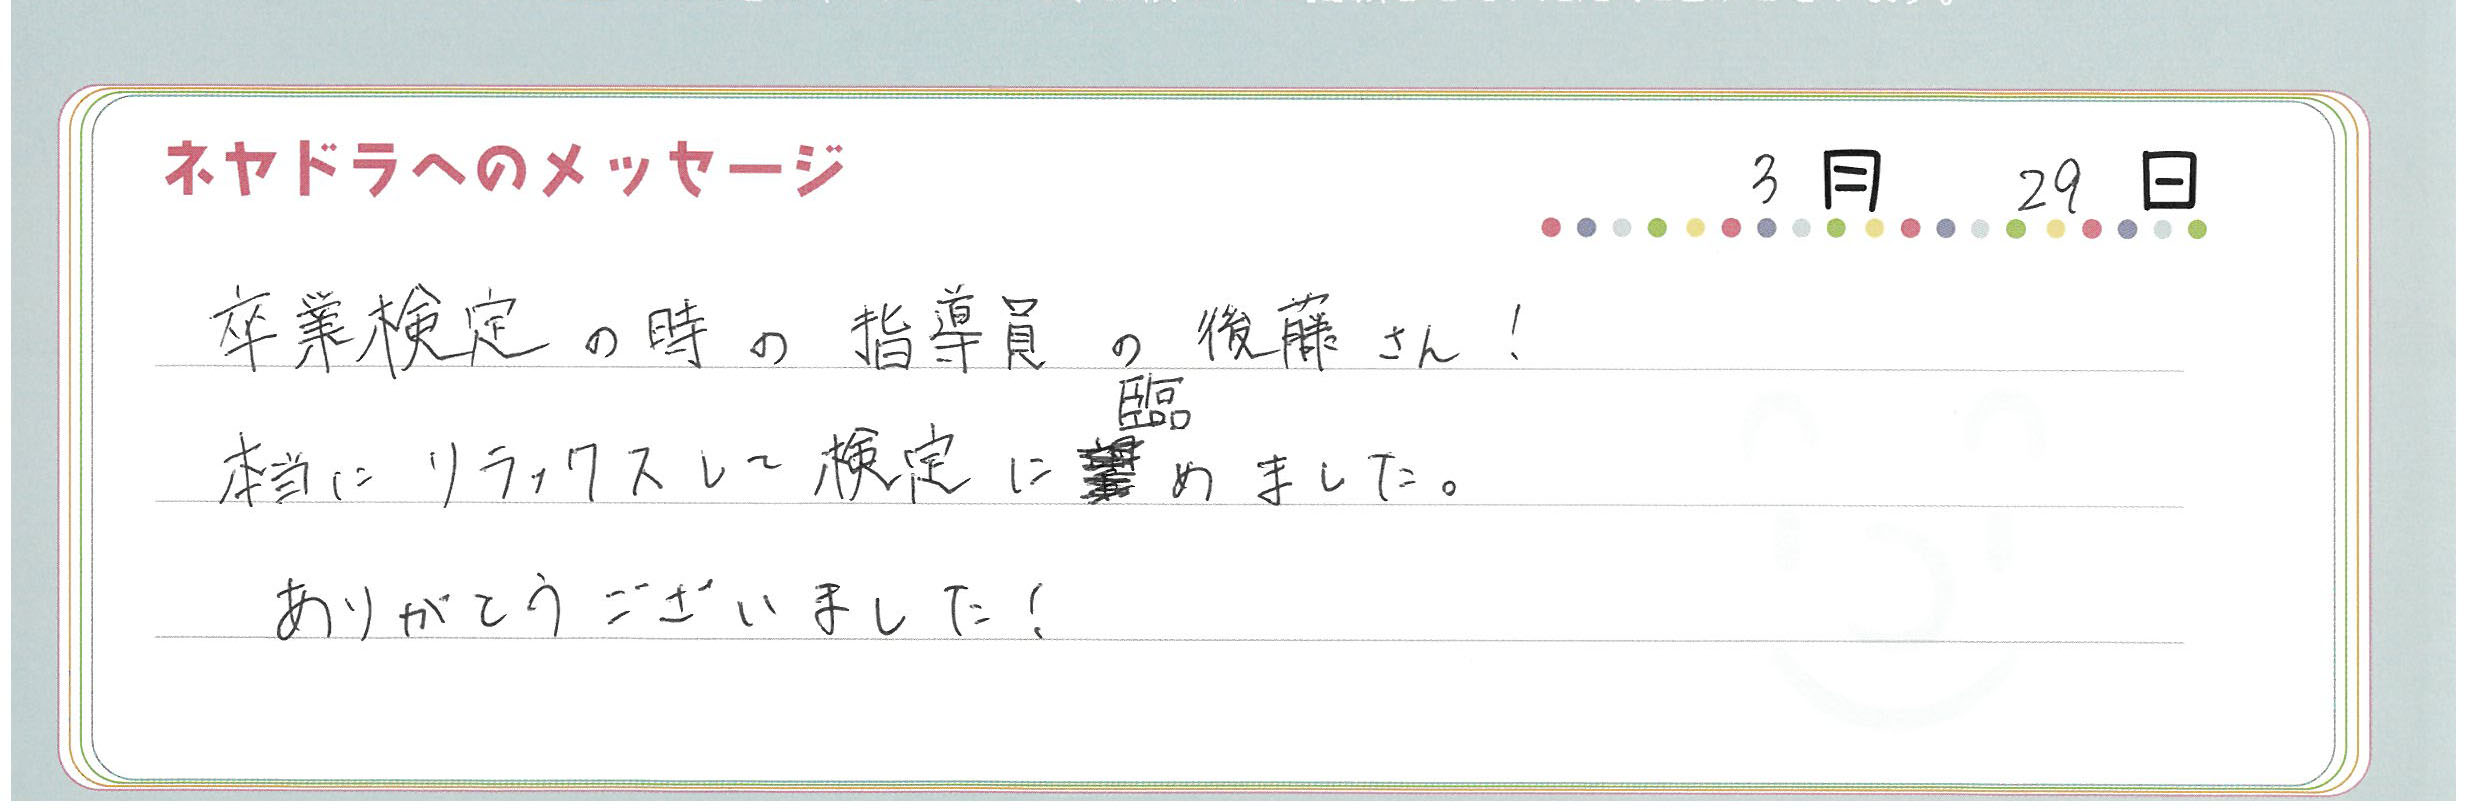 ネヤドラへのメッセージ
3月 29日
卒業検定の時の指導員の後藤さん!
本当にリラックスして検定に臨めました。
ありがとうございました!